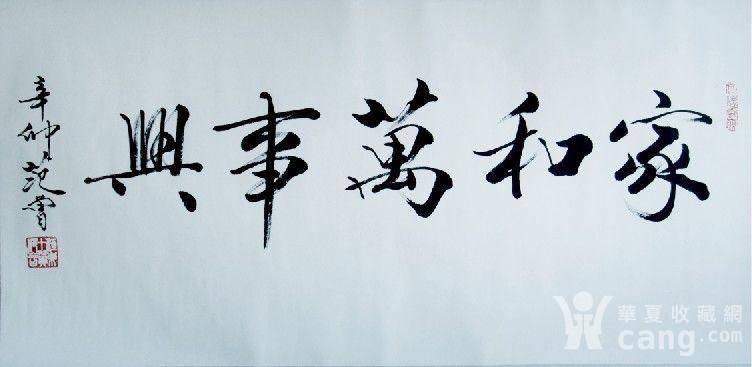 家和萬事興
辛卯 范曾
華夏收藏網
cang.com